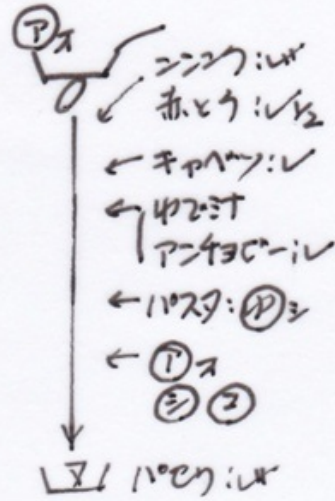 ㋐ス
ンンニク:レ
赤とう:レ1/2
キャベツ:レ
ゆで汁
アンチョビー:レ
パスタ:ゆシ
㋐ス
㋛ コ
パセリ:レ